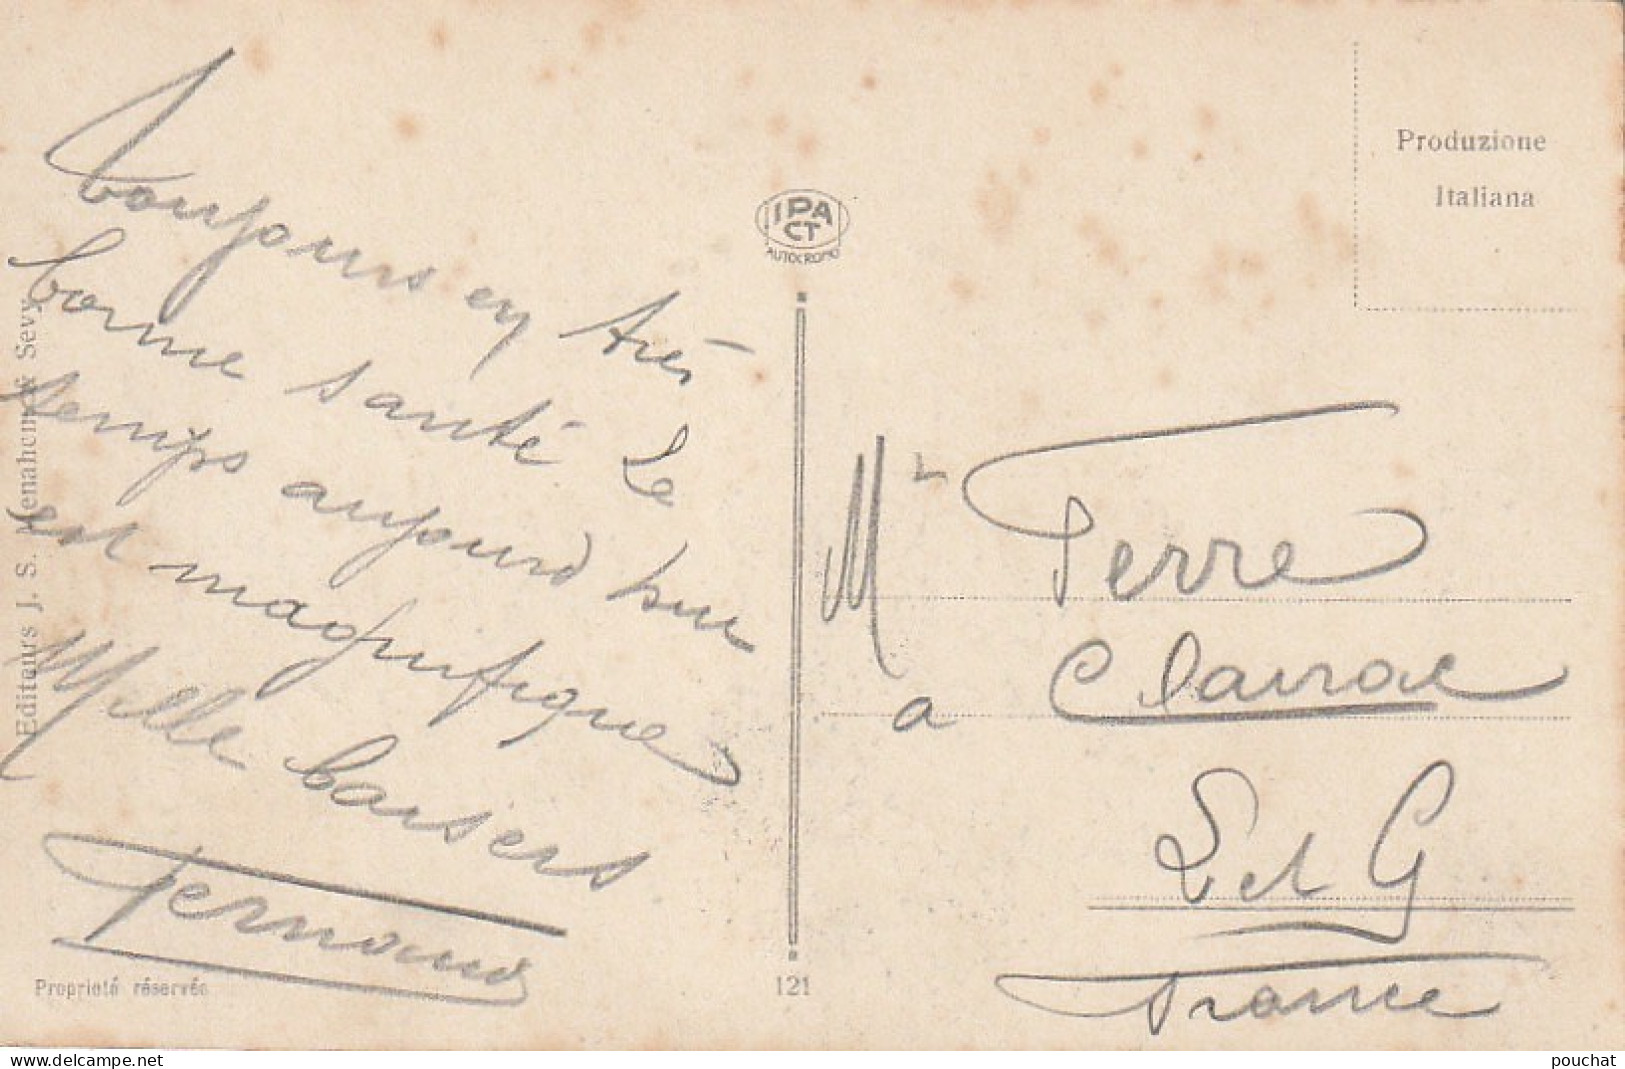 toujours en très
bonne santé le
temps aujourd hui
est magnifique
Mille baisers
Fernand
Editeurs J. S. Menahem & Sevy
Propriété réservée
IPA
CT
AUTOCROMO
121
Produzione
Italiana
Mr Ferre
a Clairac
L et G
France
www.delcampe.net
pouchat